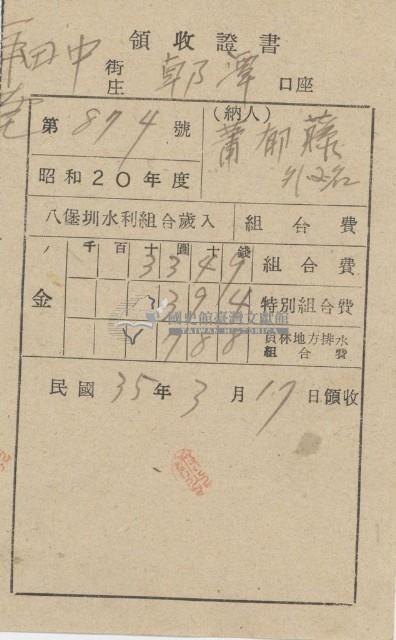 領收證書
田中
街
庄
郭潭
口座
第 874 號
(納人)
蕭郁藤
外四名
昭和20年度
八堡圳水利組合歲入
組合費
千百十圓十錢
金
3349
組合費
394
特別組合費
788
員林地方排水
組合費
國史館臺灣文獻館
TAIWAN HISTORICA
民國35年3月17日領收